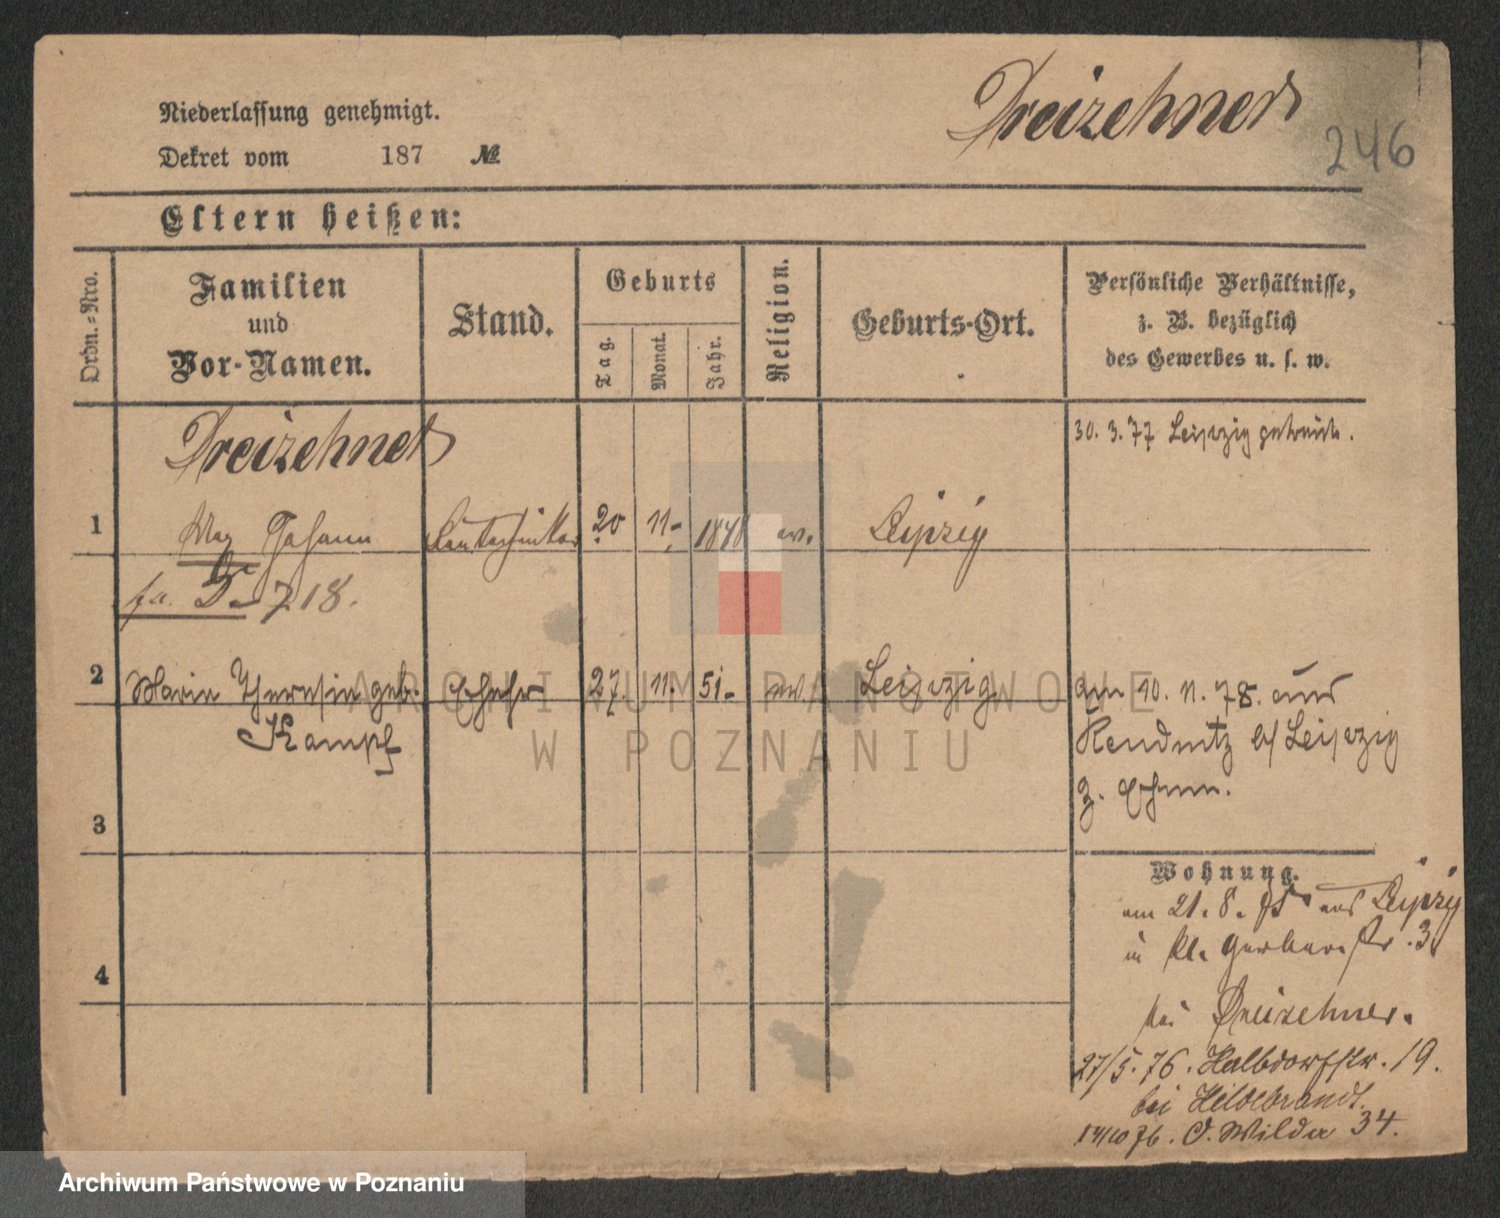 Dreizehner
246
Niederlassung genehmigt.
Dekret vom 187 №
Eltern heißen:
Ordn.-Nro.
Familien
und
Vor-Namen.
Stand.
Geburts
Tag.
Monat.
Jahr.
Religion.
Geburts-Ort.
Persönliche Verhältnisse,
z. B. bezüglich
des Gewerbes u. s. w.
Dreizehner
30. 3. 77 Leipzig
1 Max Johann Bautechniker 20 11. 1848 ev. Leipzig
718.
2 Marie Therese geb. Ehefr 27. 11. 51. ev. Leipzig
Kampf
am 10. 11. 78. aus
Reudnitz b/ Leipzig
z. Ehem.
3
Wohnung.
am 21. 8. 75 aus Leipzig
in kl. Gerberstr. 3.
4
bei Dreizehner.
27/5. 76. Halbdorfstr. 19.
bei Hildebrandt.
14/10 76. O. Wilda 34.
ARCHIWUM PAŃSTWOWE
W POZNANIU
Archiwum Państwowe w Poznaniu